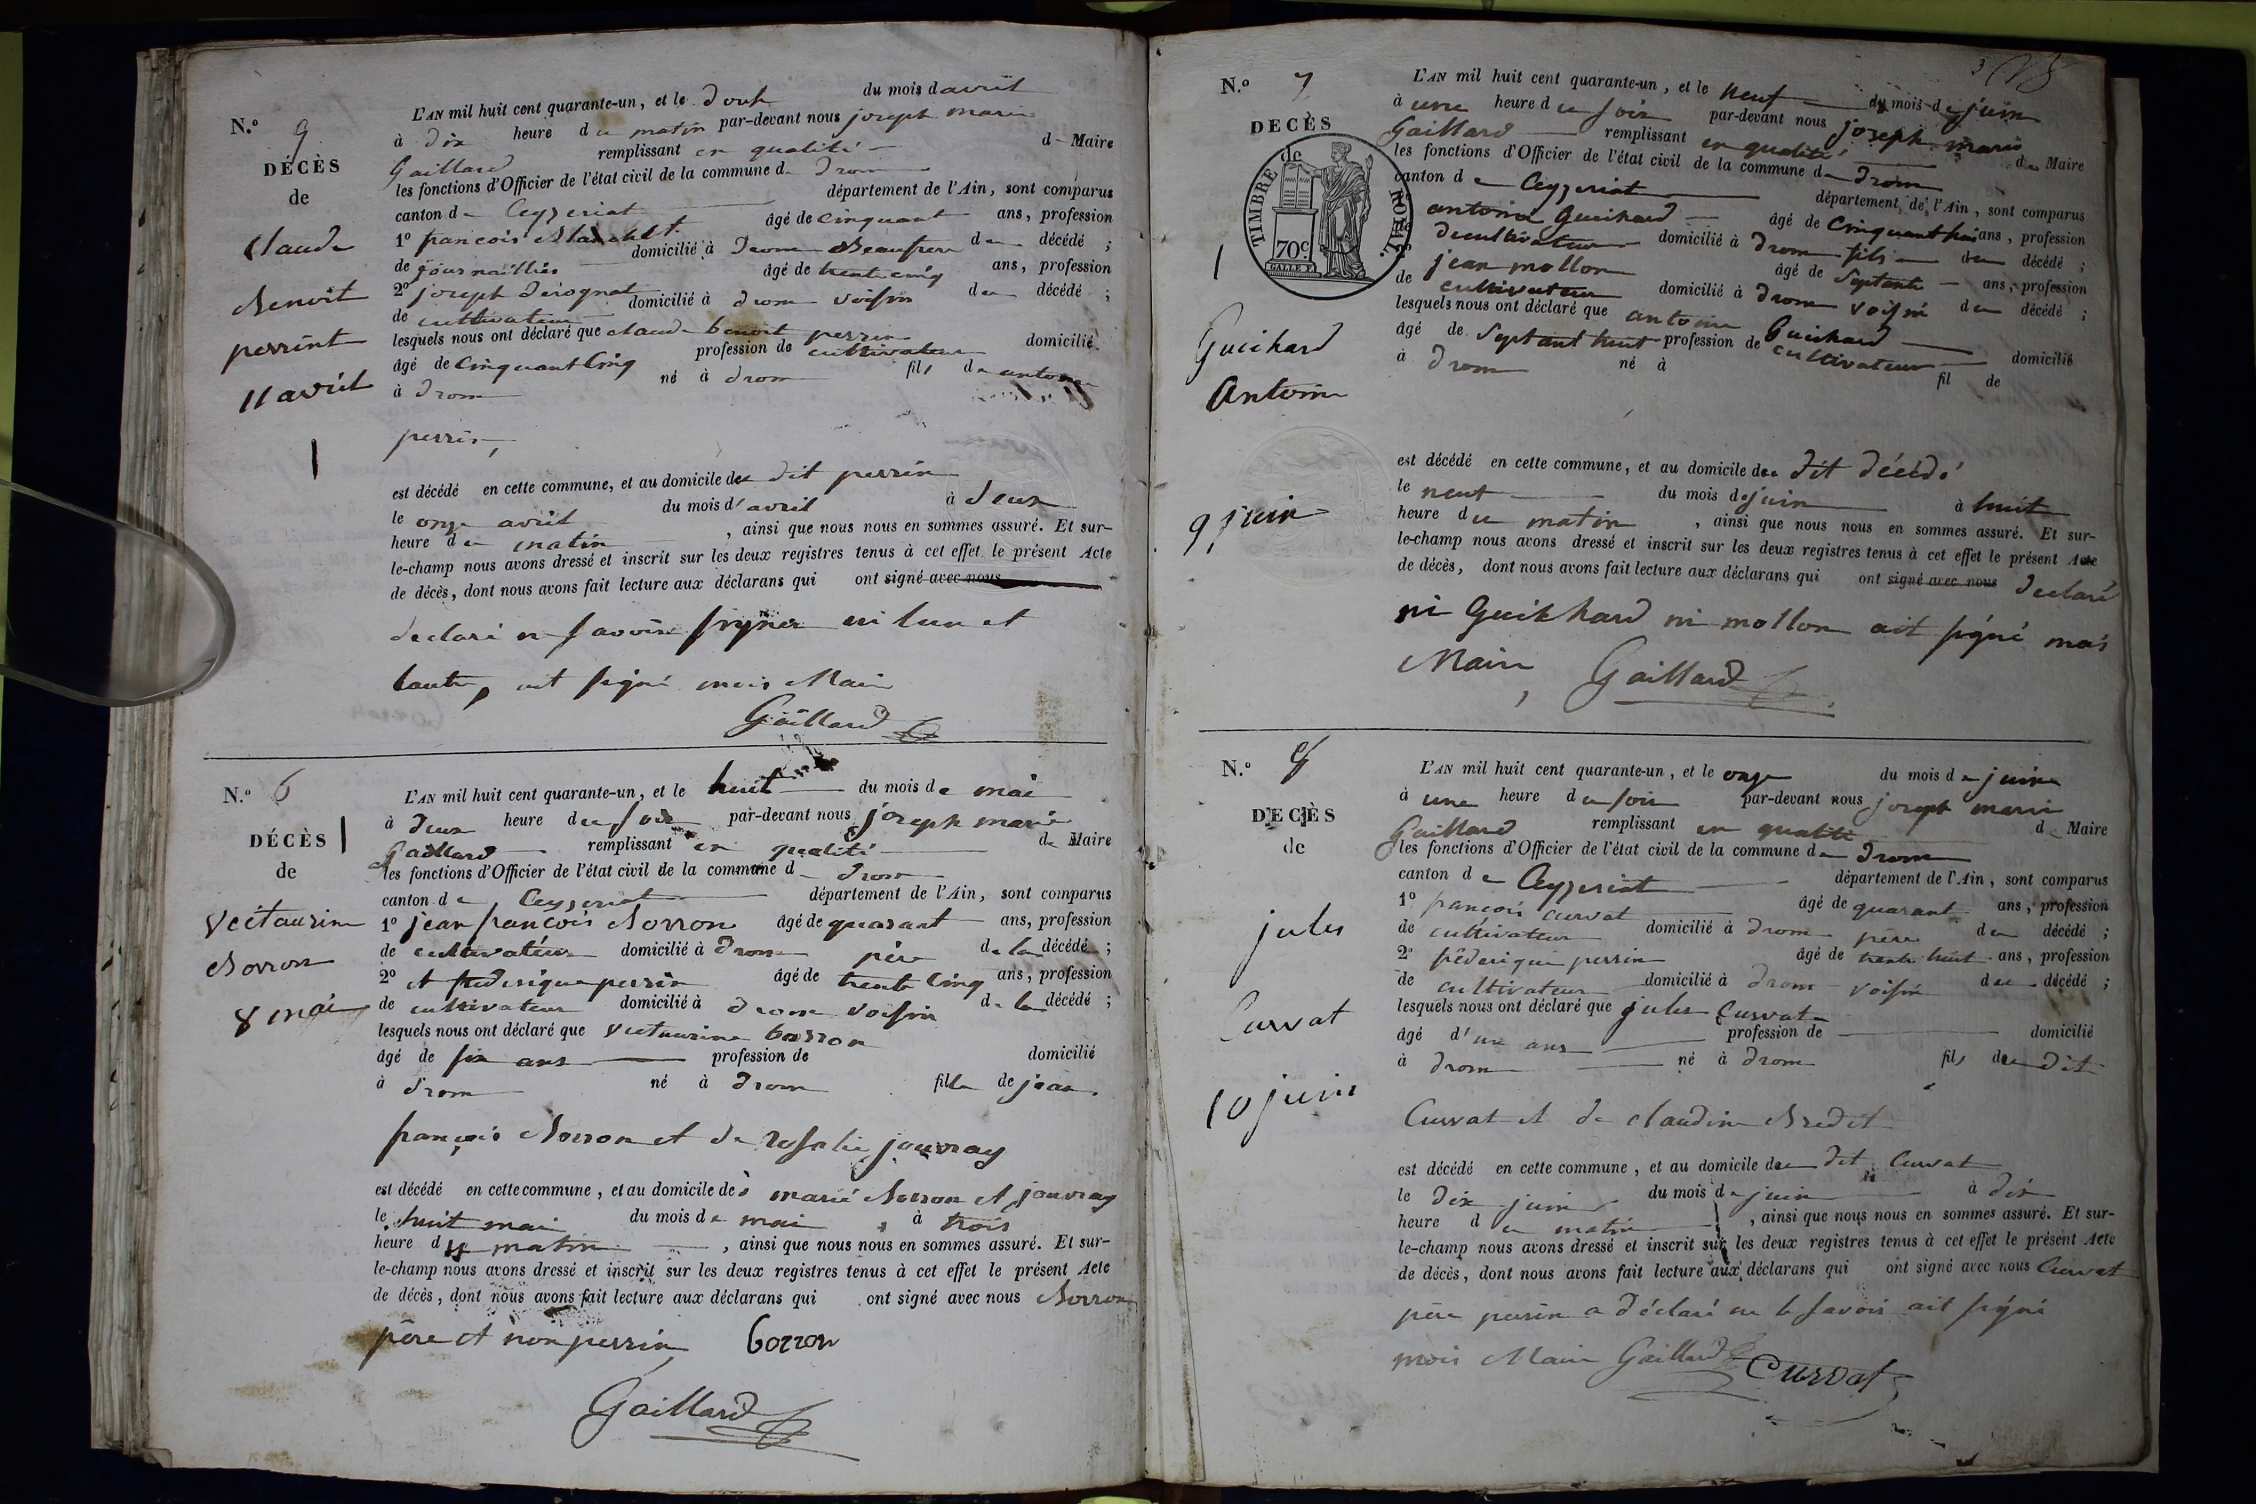 N.º 9
DÉCÈS
de
Claude
Benoit
perrint
11 avril
L'AN mil huit cent quarante-un, et le douse du mois d avril
à dix heure du matin par-devant nous joseph marie
Gaillard remplissant en qualité de Maire
les fonctions d'Officier de l'état civil de la commune de drom
canton de Ceyzeriat département de l'Ain, sont comparus
1º francois Blanchet âgé de cinquant ans, profession
de journallier domicilié à Drom Beaufrere du décédé ;
2º joseph derognat âgé de trente cinq ans, profession
de cultivateur domicilié à drom voisin du décédé ;
lesquels nous ont déclaré que claude benoit perrin
âgé de Cinquant Cinq profession de cultivateur domicilié
à drom né à drom fils de antoine
perrin,
est décédé en cette commune, et au domicile du dit perrin
le onze avril du mois d'avril à deux
heure du matin , ainsi que nous nous en sommes assuré. Et sur-
le-champ nous avons dressé et inscrit sur les deux registres tenus à cet effet le présent Acte
de décès, dont nous avons fait lecture aux déclarans qui ont signé avec nous
declaré ne savoir signer ni lun et
lautre, ait signé mois Maire
Gaillard
N.º 6
DÉCÈS
de
Victaurine
Borron
8 mai
L'AN mil huit cent quarante-un, et le huit du mois de mai
à deux heure du soir par-devant nous joseph marie
Gaillard remplissant en qualité de Maire
les fonctions d'Officier de l'état civil de la commune d drom
canton de Ceyzeriat département de l'Ain, sont comparus
1º jean francois Borron âgé de quarant ans, profession
de cultivateur domicilié à drom père de la décédé ;
2º et frederique perrin âgé de trente Cinq ans, profession
de cultivateur domicilié à drom voisin de la décédé ;
lesquels nous ont déclaré que victaurine borron
âgé de six ans profession de domicilié
à drom né à drom fille de jean
françois Borron et de Rosalie jouvray
est décédé en cette commune, et au domicile des marié Borron et jouvray
le huit mai du mois de mai à trois
heure du matin , ainsi que nous nous en sommes assuré. Et sur-
le-champ nous avons dressé et inscrit sur les deux registres tenus à cet effet le présent Acte
de décès, dont nous avons fait lecture aux déclarans qui ont signé avec nous Borron
père et non perrin borron
Gaillard
3
N.º 7
DECÈS
de
TIMBRE ROYAL.
70c.
Guichard
Antoine
9 juin
L'AN mil huit cent quarante-un, et le neuf du mois de juin
à une heure du soir par-devant nous joseph marie
Gaillard remplissant en qualité de Maire
les fonctions d'Officier de l'état civil de la commune de drom
canton de Ceyzeriat département de l'Ain, sont comparus
antoine Guichard âgé de Cinquant ans, profession
de cultivateur domicilié à drom fils du décédé ;
jean mollon âgé de Septante ans, profession
de cultivateur domicilié à drom voisin du décédé ;
lesquels nous ont déclaré que antoine Guichard
âgé de Septant huit profession de cultivateur domicilié
à drom né à fil de
est décédé en cette commune, et au domicile du dit décédé
le neuf du mois de juin à huit
heure du matin , ainsi que nous nous en sommes assuré. Et sur-
le-champ nous avons dressé et inscrit sur les deux registres tenus à cet effet le présent Acte
de décès, dont nous avons fait lecture aux déclarans qui ont signé avec nous declaré
ni Guichard ni mollon ait signé mois
Maire, Gaillard
N.º 8
DECÈS
de
jules
Curvat
10 juin
L'AN mil huit cent quarante-un, et le onze du mois de juin
à une heure du soir par-devant nous joseph marie
Gaillard remplissant en qualité de Maire
les fonctions d'Officier de l'état civil de la commune de drom
canton de Ceyzeriat département de l'Ain, sont comparus
1º francois curvat âgé de quarant ans, profession
de cultivateur domicilié à drom père du décédé ;
2º féderique perrin âgé de trente huit ans, profession
de cultivateur domicilié à drom voisin du décédé ;
lesquels nous ont déclaré que jules Curvat
âgé d'un ans profession de domicilié
à drom né à drom fils du dit
Curvat et de claudine Bredet
est décédé en cette commune, et au domicile du dit Curvat
le dix juin du mois de juin à dix
heure du matin , ainsi que nous nous en sommes assuré. Et sur-
le-champ nous avons dressé et inscrit sur les deux registres tenus à cet effet le présent Acte
de décès, dont nous avons fait lecture aux déclarans qui ont signé avec nous Curvat
père perrin a déclaré ne le savoir ait signé
mois Maire Gaillard Curvat